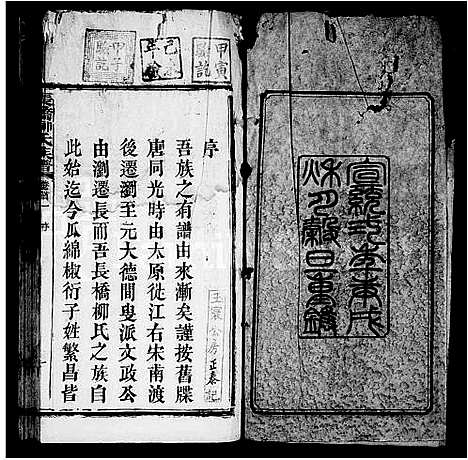 宣統二年庚戌
秋月穀旦重鐫
甲寅
甲子
序
吾族之有譜由來漸矣謹按舊牒
唐同光時由太原徙江右宋南渡
後遷瀏至元大德間叟派文政公
由瀏遷長而吾長橋柳氏之族自
此始迄今瓜綿椒衍子姓繁昌皆
長橋柳氏宗譜